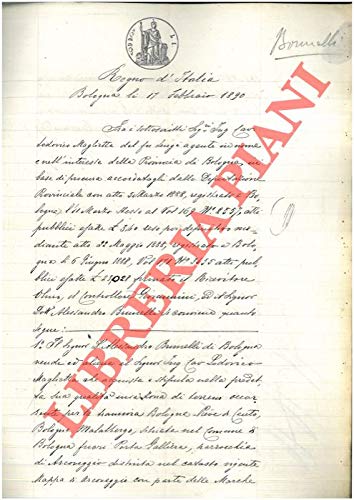 Brunelli
Regno d'Italia
Bologna li 17 Febbraio 1890
Tra i sottoscritti Sig.ri Ing. Cav.
Lodovico Maglietta del fu Luigi agente in nome
e nell'interesse della Provincia di Bologna, in
base di procura accordatagli dalla Deputazione
Provinciale con atto 3 Marzo 1888, registrato a Bo-
logna
pubblici
22 Maggio 1888, registrato a Bolo-
gna li 6 Giugno 1888, Vol
il Ricevitore
il controllore ed il Signor
Alessandro Brunelli si conviene quanto
segue:
1º Il Signor Alessandro Brunelli di Bologna
vende ed aliena al Signor Ing. Cav. Lodovico
Maglietta che acquista e stipula nella predet-
ta sua qualità una zona di terreno occor-
rente per la tramvia Bologna Pieve di Cento,
Bologna Malalbergo, situata nel Comune di
Bologna fuori Porta Galliera, parrocchia
di Arcoveggio distinta nel catasto vigente
Mappa di Arcoveggio con parte delle Marche
LIBRERIA PIANI